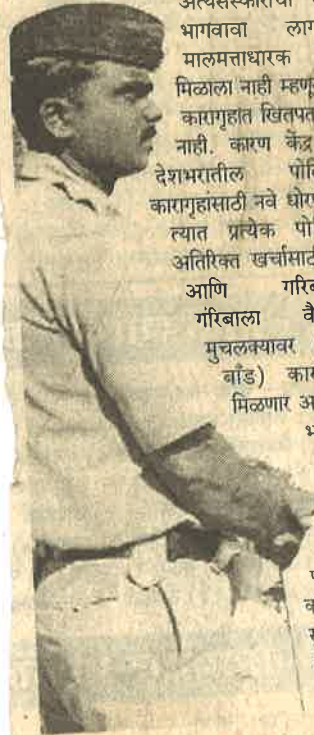 अंत्यसंस्काराचा
भागवावा लाग
मालमत्ताधारक
मिळाला नाही म्हणू
कारागृहात खितपत
नाही. कारण केंद्र
देशभरातील पोलि
कारागृहांसाठी नवे धोरण
त्यात प्रत्येक पो
अतिरिक्त खर्चासाठी
आणि गरिब
गरिबाला वै
मुचलक्यावर
बाँड) कार
मिळणार अ
भ